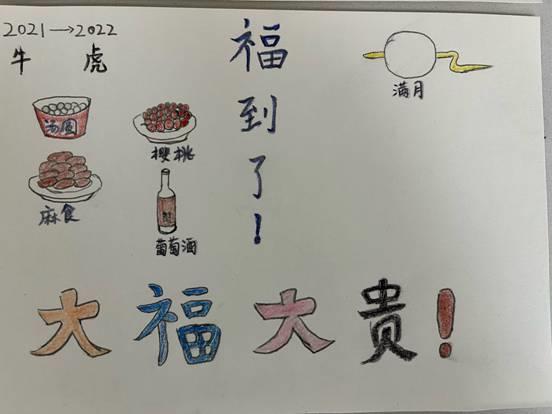 2021→2022
牛 虎
福到了!
满月
汤圆
樱桃
麻食
葡萄酒
大福大贵!